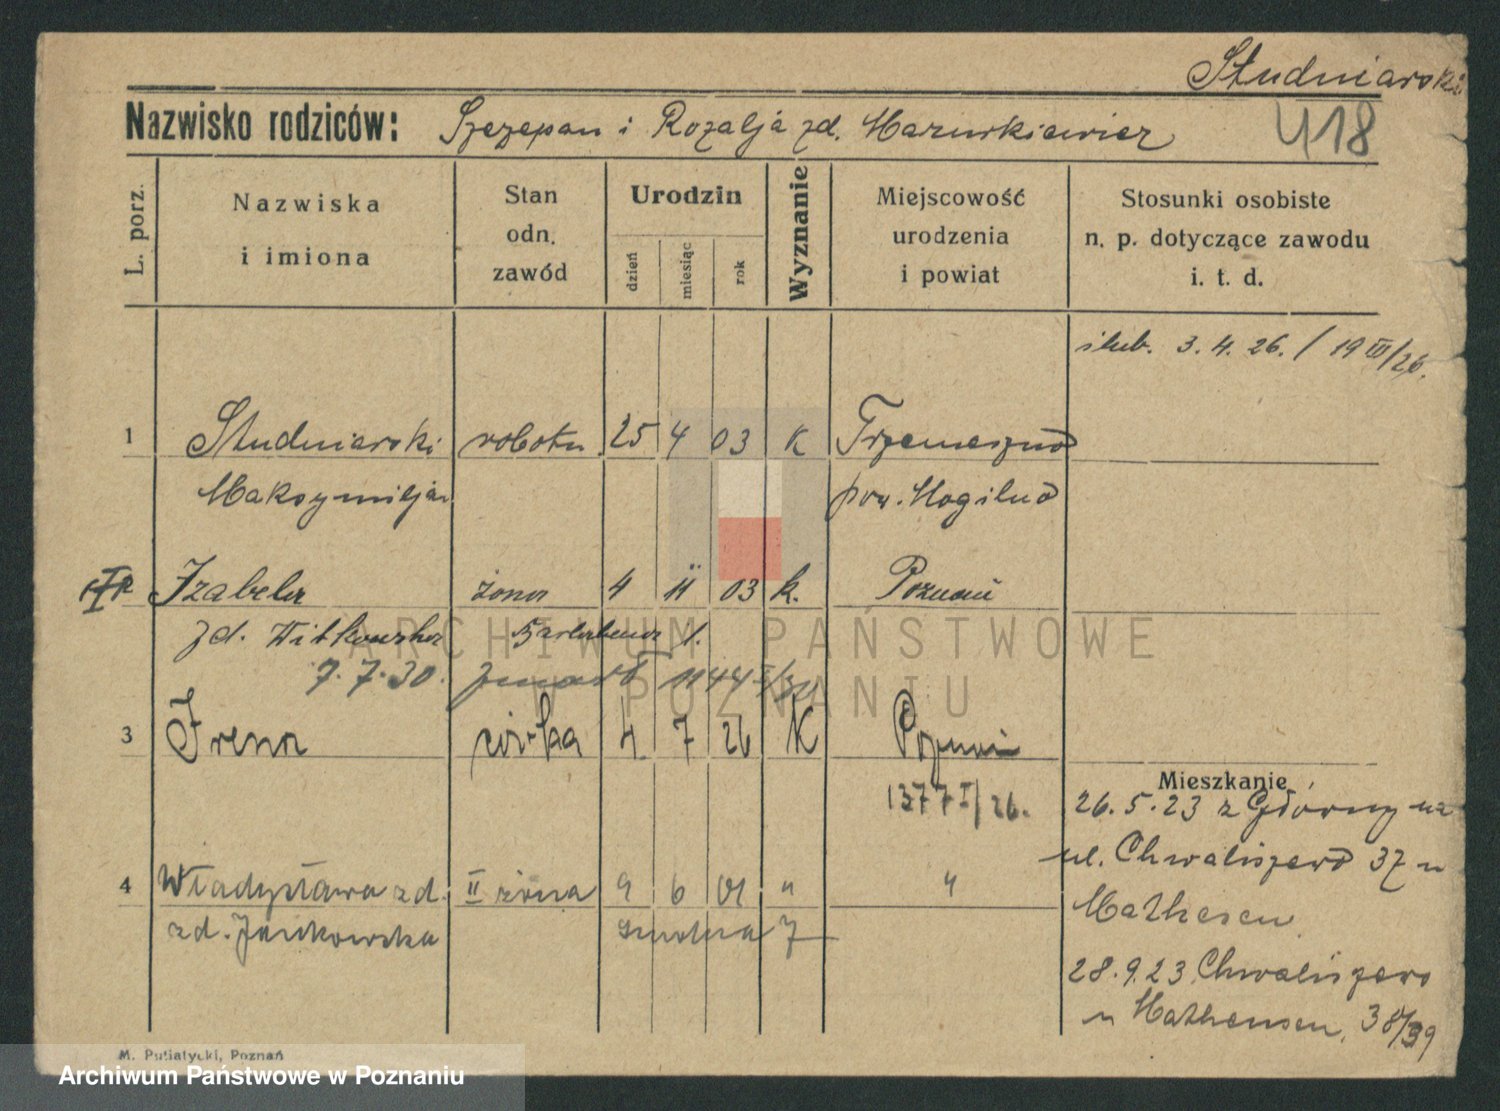 Studniarski
Nazwisko rodziców: Szczepan i Rozalja zd. Mazurkiewicz 418
L. porz.
Nazwiska i imiona
Stan odn. zawód
Urodzin
dzień miesiąc rok
Wyznanie
Miejscowość urodzenia i powiat
Stosunki osobiste n. p. dotyczące zawodu i. t. d.
ślub. 3. 4. 26. / 19 III/26.
1 Studniarski robotn. 25 4 03 K Trzemeszno
Maksymiljan pow. Mogilno
Izabela żona 4 11 03 k. Poznań
zd. Witkowska
7.7.30.
3 Irena córka 4 7 26 K Poznań
1377 I/26.
Mieszkanie
26.5.23 z Główny na
ul. Chwaliszewo 37 u
4 Władysława zd. II żona 9 6 01 " "
zd. Jankowska
Mathesen
28.9.23 Chwaliszewo
u Mathensen, 38/39
M. Putiatycki, Poznań
ARCHIWUM PAŃSTWOWE
W POZNANIU
Archiwum Państwowe w Poznaniu